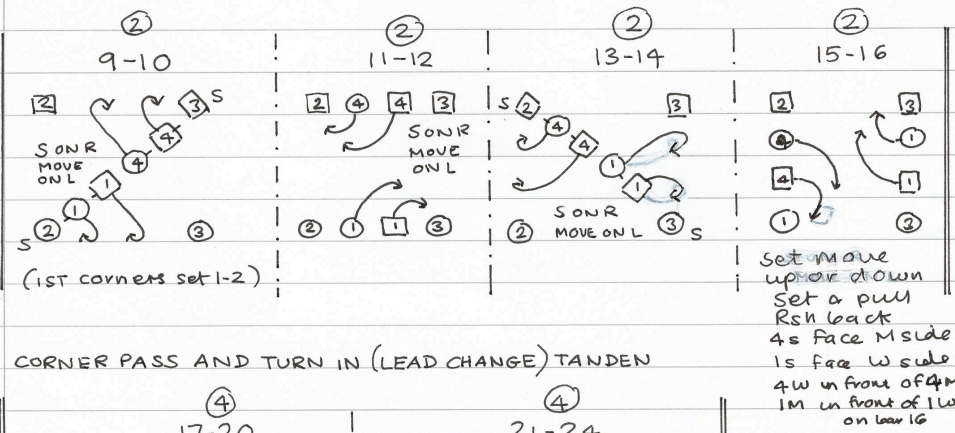 2
9-10
2
3
S
4
S ON R
MOVE
ON L
4
1
1
S
2
3
(1ST corners set 1-2)
2
11-12
2
4
4
3
S ON R
MOVE
ON L
2
1
1
3
2
13-14
S
2
3
4
4
1
1
S ON R
MOVE ON L
2
3
S
2
15-16
2
3
4
1
4
1
1
3
set move
up or down
Set a pull
Rsh back
4s face M side
1s face W side
4W in front of 4M
1M in front of 1W
on bar 16
CORNER PASS AND TURN IN (LEAD CHANGE) TANDEN
4
17-20
4
21-24